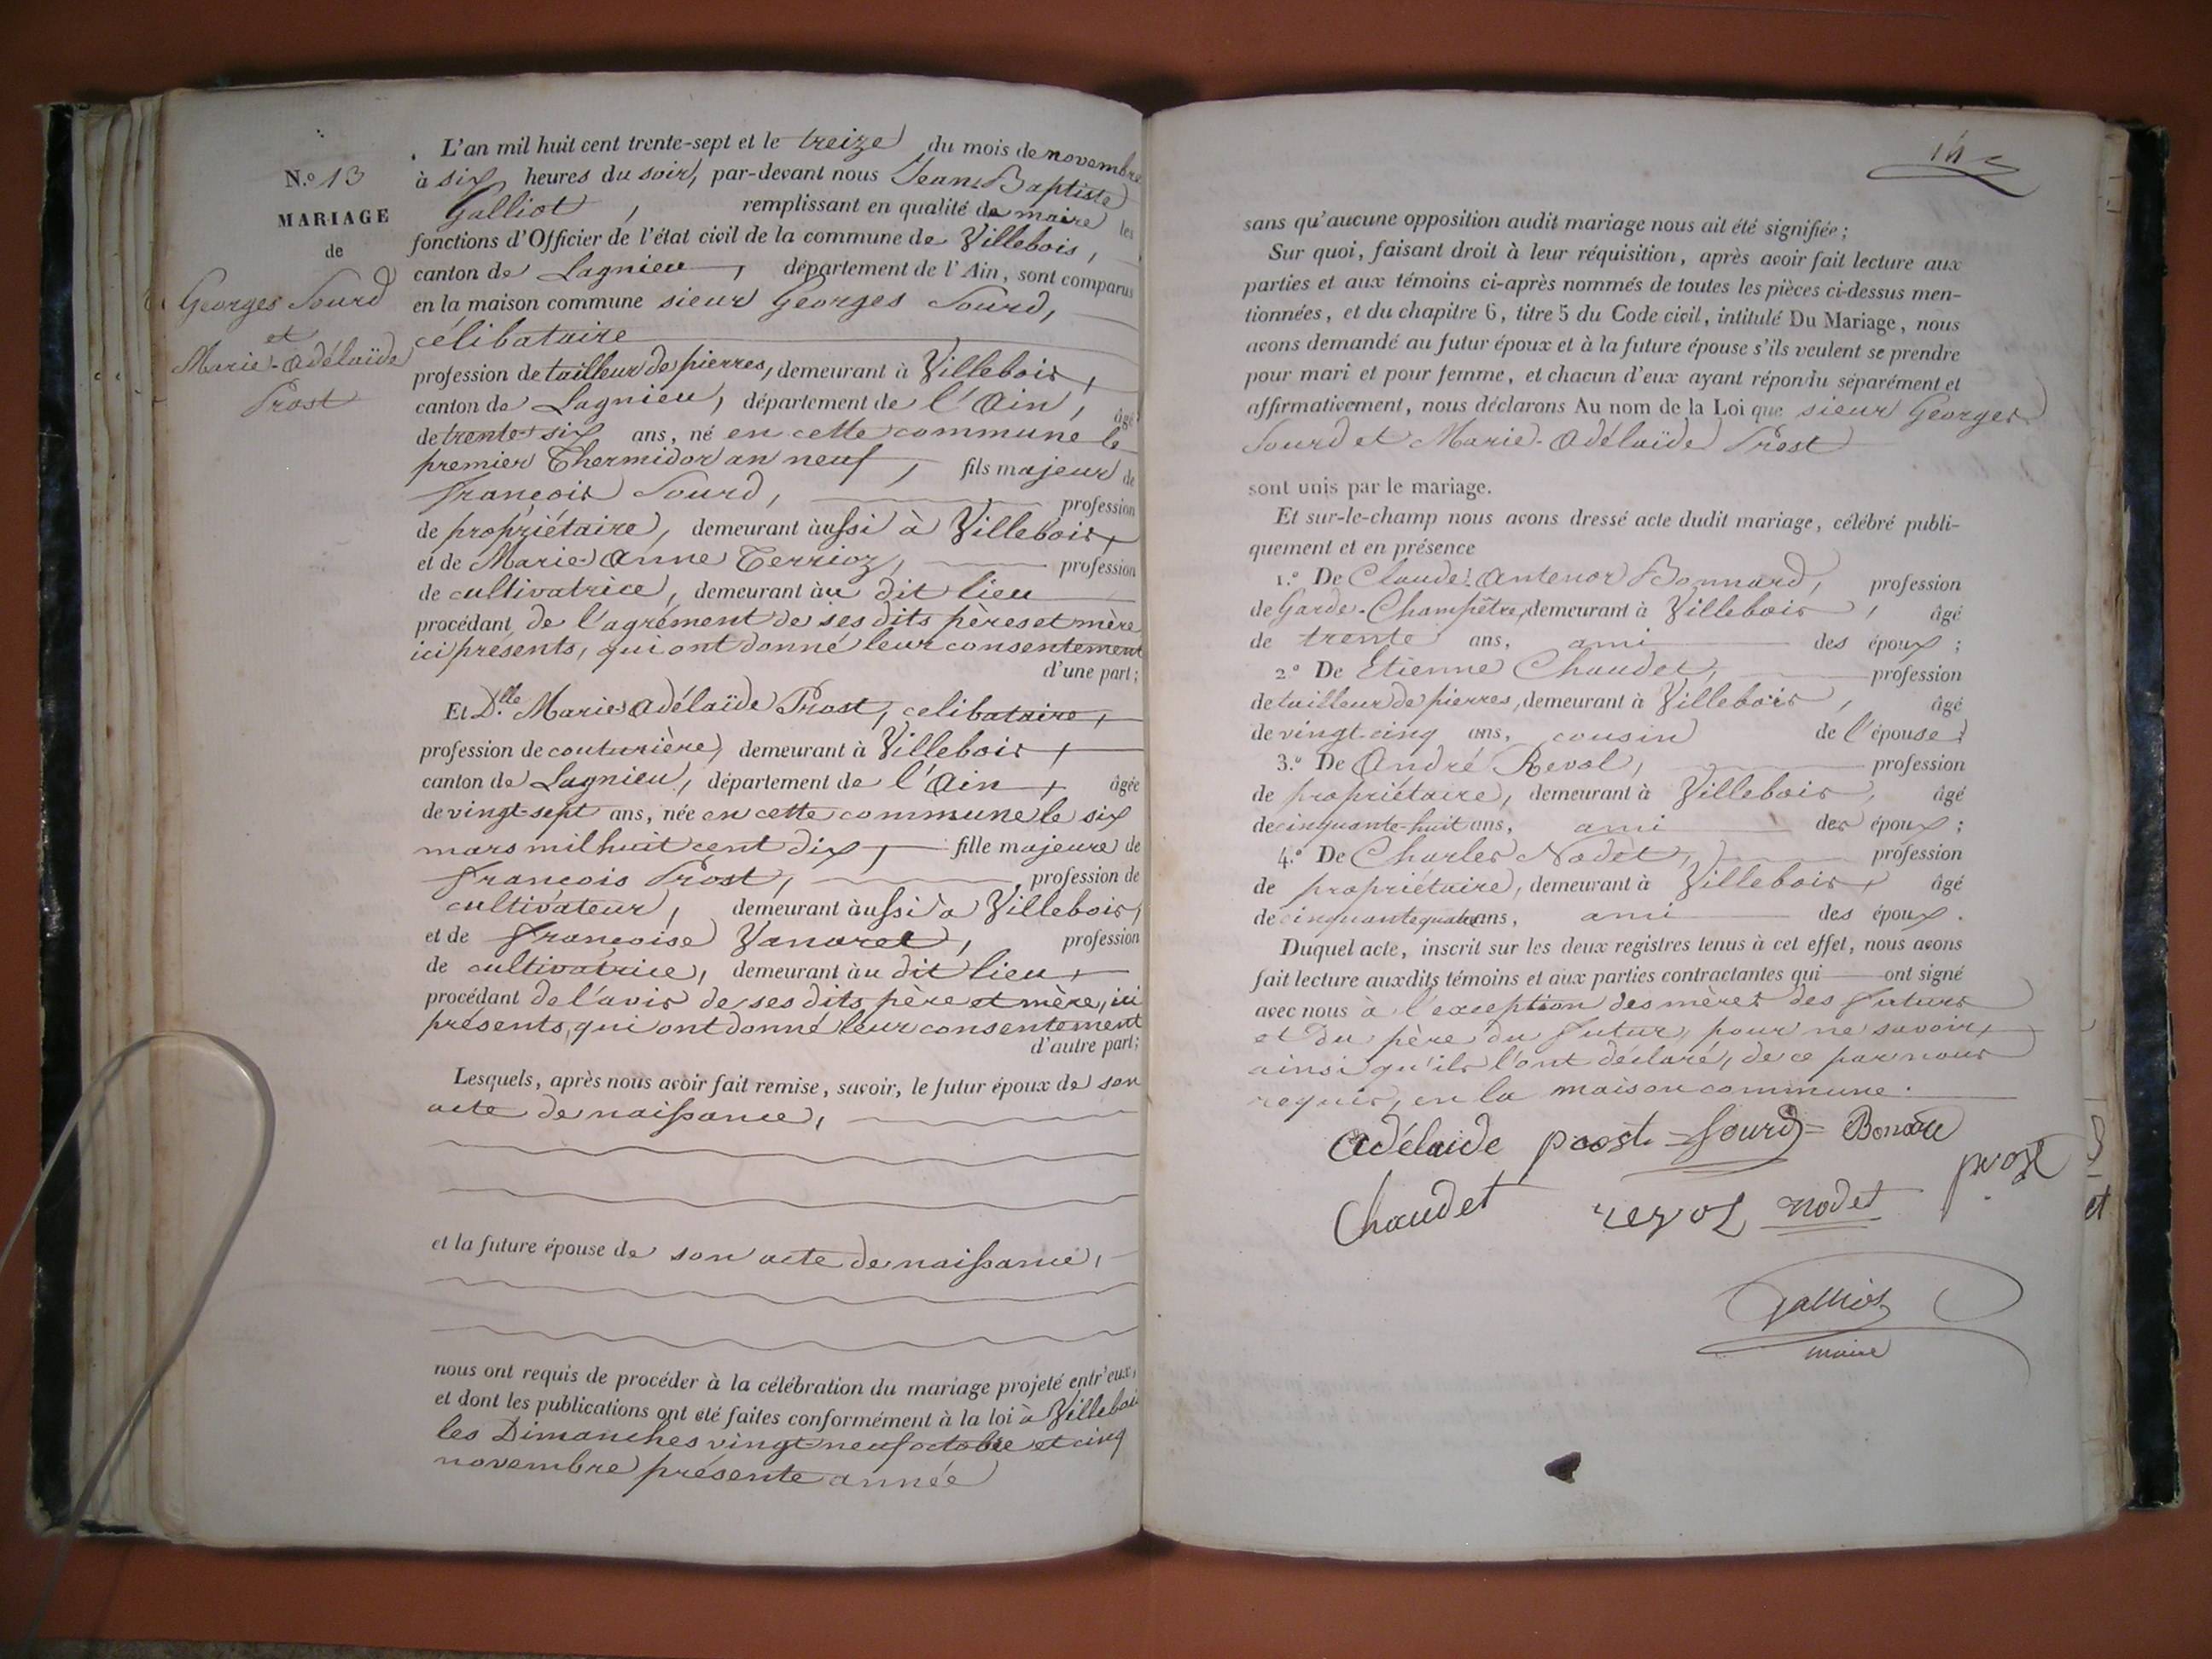 N.o 13
MARIAGE
de
Georges Sourd
et
Marie-Adélaïde
Prost
L'an mil huit cent trente-sept et le treize du mois de novembre
à six heures du soir, par-devant nous Jean-Baptiste
Galliot, remplissant en qualité de maire les
fonctions d'Officier de l'état civil de la commune de Villebois,
canton de Lagnieu, département de l'Ain, sont comparus
en la maison commune sieur Georges Sourd,
célibataire
profession de tailleur de pierres, demeurant à Villebois,
canton de Lagnieu, département de l'Ain, âgé
de trente-six ans, né en cette commune le
premier Thermidor an neuf, fils majeur de
François Sourd, profession
de propriétaire, demeurant aussi à Villebois,
et de Marie Anne Terrioz, profession
de cultivatrice, demeurant au dit lieu
procédant de l'agrément de ses dits pères et mère
ici présents, qui ont donné leur consentement
d'une part;
Et D.lle Marie-Adélaïde Prost, celibataire,
profession de couturière, demeurant à Villebois,
canton de Lagnieu, département de l'Ain, âgée
de vingt-sept ans, née en cette commune le six
mars mil huit cent dix, fille majeure de
François Prost, profession de
cultivateur, demeurant aussi à Villebois,
et de Françoise Vanarel, profession
de cultivatrice, demeurant au dit lieu,
procédant de l'avis de ses dits père et mère, ici
présents, qui ont donné leur consentement
d'autre part;
Lesquels, après nous avoir fait remise, savoir, le futur époux de son
acte de naissance,
et la future épouse de son acte de naissance,
nous ont requis de procéder à la célébration du mariage projeté entr'eux,
et dont les publications ont été faites conformément à la loi à Villebois
les Dimanches vingt-neuf octobre et cinq
novembre présente année
14
sans qu'aucune opposition audit mariage nous ait été signifiée;
Sur quoi, faisant droit à leur réquisition, après avoir fait lecture aux
parties et aux témoins ci-après nommés de toutes les pièces ci-dessus men-
tionnées, et du chapitre 6, titre 5 du Code civil, intitulé Du Mariage, nous
avons demandé au futur époux et à la future épouse s'ils veulent se prendre
pour mari et pour femme, et chacun d'eux ayant répondu séparément et
affirmativement, nous déclarons Au nom de la Loi que sieur Georges
Sourd et Marie-Adélaïde Prost
sont unis par le mariage.
Et sur-le-champ nous avons dressé acte dudit mariage, célébré publi-
quement et en présence
1.o De Claude-Antenor Bonnard, profession
de Garde-Champêtre, demeurant à Villebois, âgé
de trente ans, ami des époux;
2.o De Etienne Chaudet, profession
de tailleur de pierres, demeurant à Villebois, âgé
de vingt-cinq ans, cousin de l'épouse;
3.o De André Revol, profession
de propriétaire, demeurant à Villebois, âgé
de cinquante-huit ans, ami des époux;
4.o De Charles Nodet, profession
de propriétaire, demeurant à Villebois, âgé
de cinquante quatre ans, ami des époux.
Duquel acte, inscrit sur les deux registres tenus à cet effet, nous avons
fait lecture auxdits témoins et aux parties contractantes qui ont signé
avec nous à l'exception des mères des futurs
et du père du futur, pour ne savoir,
ainsi qu'ils l'ont déclaré, de ce par nous
requis, en la maison commune.
Adélaide prost Sourd
Chaudet revol nodet prost
Galliot
maire
et